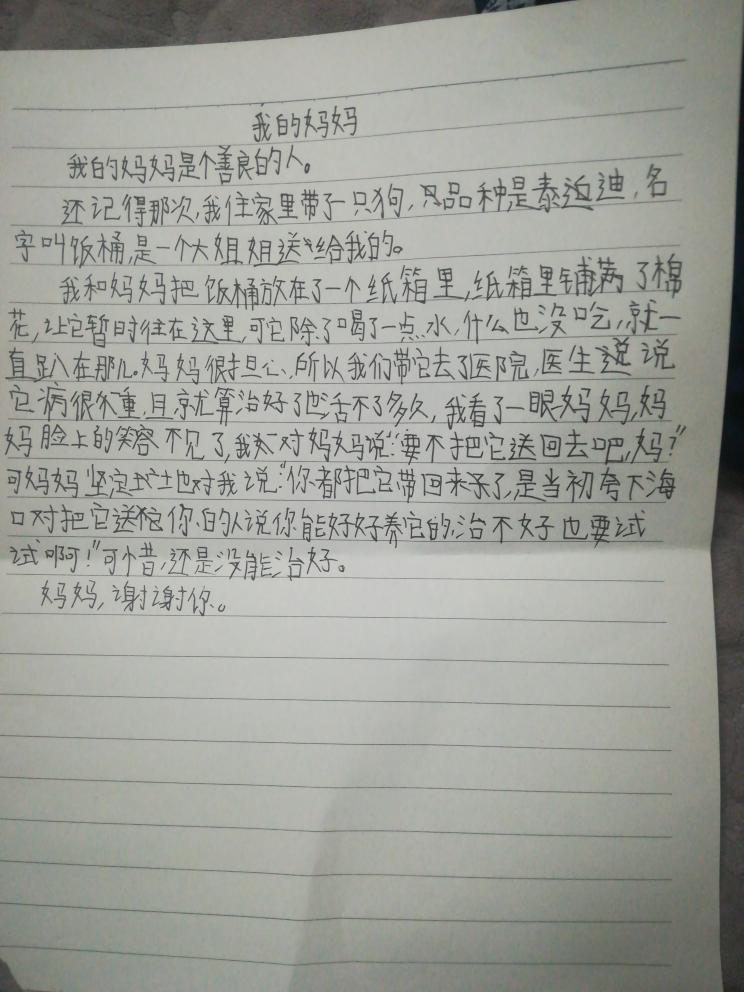 我的妈妈
我的妈妈是个善良的人。
还记得那次,我住家里带了一只狗,只品种是泰迫迪,名
字叫饭桶,是一个大姐姐送给我的。
我和妈妈把饭桶放在了一个纸箱里,纸箱里铺满了棉
花,让它暂时住在这里,可它除了喝了一点水,什么也没吃,就一
直趴在那儿。妈妈很担心,所以我们带它去了医院,医生说说
它病很重,且就算治好了也活不了多久,我看了一眼妈妈,妈
妈脸上的笑容不见了,我对妈妈说:“要不把它送回去吧,妈?”
可妈妈坚定地对我说:“你都把它带回来了,是当初夸下海
口对把它送给你的人说你能好好养它的,治不好也要试
试啊!”可惜,还是没能治好。
妈妈,谢谢你。